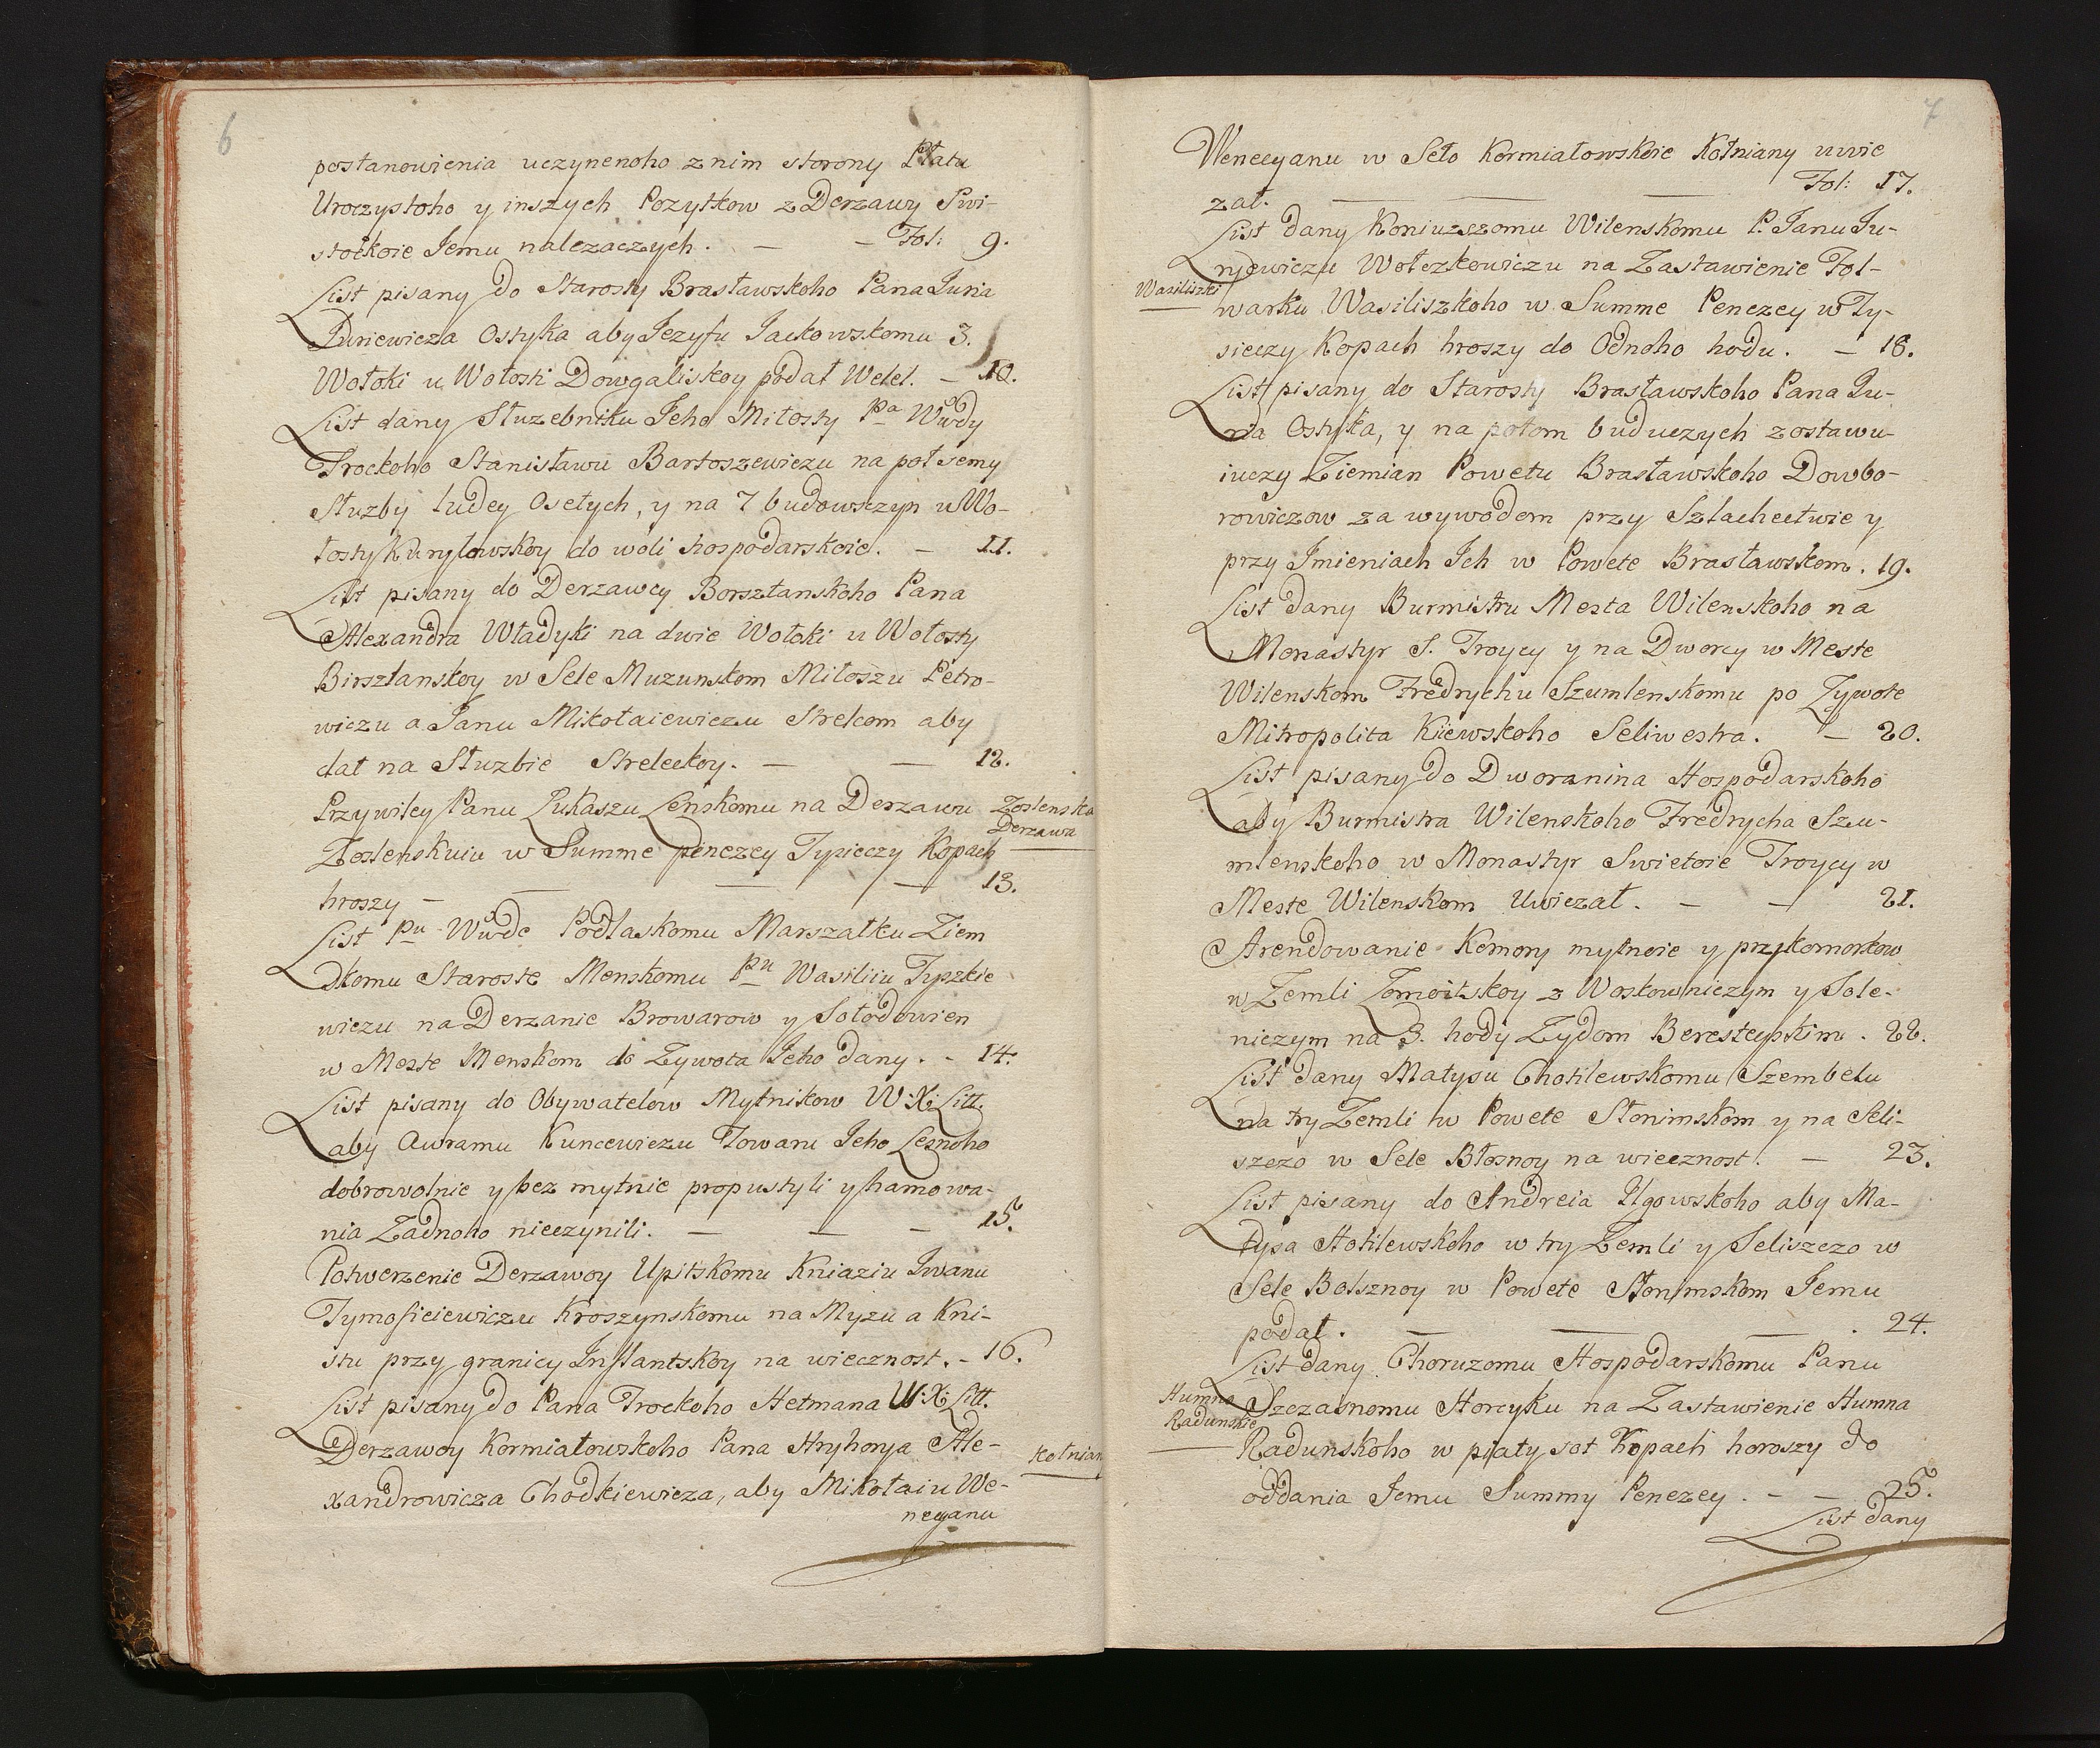 6
postanowienia uczynenoho z nim storony Płatu
Uroczystoho y inszych Pozytkow z Derzawy Swi-
stockoie Jemu nalezaczych. — — Fol: 9.
List pisany do Starosty Brasławskoho Pana Juria
Juriewicza Ostyka aby Jezyfu Jackowskomu 3.
Wołoki u Wołosti Dowgaliskoy podał Welel. — 10.
List dany Słuzebniku Jeho Miłosty Pa Wwdy
Trockoho Stanisławu Bartoszewiczu na poł semy
Słuzby ludey Osełych, y na 7 budowszczyn u Wo-
łosty Kuryłowskoy do woli hospodarskoie. — 11.
List pisany do Derzawcy Borsztanskoho Pana
Alexandra Władyki na dwie Wołoki u Wołosty
Birsztanskoy w Sele Muzunskom Miłoszu Petro-
wiczu a Janu Mikołaiewiczu Strelcom aby
dał na Słuzbie Streleckoy. — — 12.
Przywiley Panu Łukaszu Lenskomu na Derzawu
Zoslenska
Derzawa
Zoslenskuiu w Summe penezey Tysieczy Kopach
hroszy — — — — 13.
List Pu Wwde Podlaskomu Marszałku Ziem
skomu Staroste Menskomu Pu Wasiliiu Tyszkie
wiczu na Derzanie Browarow y Sołodowien
w Meste Menskom do Zywota Jeho dany. - 14.
List pisany do Obywatelow Mytnikow W: X: Litt.
aby Awramu Kuncewiczu Towaru Jeho Lesnoho
dobrowolnie y bez mytnie propustyli y hamowa-
nia Zadnoho nieczynili. — — — 15.
Potwerzenie Derzawcy Upitskomu Kniaziu Iwanu
Tymofieiewiczu Kroszynskomu na Myzu a Kni-
stu przy granicy Inflantskoy na wiecznost. - 16.
List pisany do Pana Trockoho Hetmana W: X: Litt.
Derzawcy Kormiałowskoho Pana Hryhorya Ale-
xandrowicza Chodkiewicza, aby Mikołaiu We-
Kołnian
necyanu
7
Wenecyanu w Seło Kormiałowskoie Kołniany uwie
zał. — — Fol: 17.
List dany Koniuszszomu Wilenskomu P. Janu Ju-
rjewiczu Wołczkowiczu na Zastawienie Fol-
Wasiliszki
warku Wasiliszkoho w Summe Penezey w Ty-
sieczy Kopach hroszy do Odnoho hodu. — 18.
List pisany do Starosty Brasławskoho Pana Ju-
ria Ostyka, y na potom buduczych zostawu-
iuczy Ziemian Powetu Brasławskoho Dowbo-
rowiczow za wywodom przy Szlachectwie y
przy Imieniach Ich w Powete Brasławskom. 19.
List dany Burmistru Mesta Wilenskoho na
Monastyr S. Troycy y na Dworcy w Meste
Wilenskom Fredrychu Szumlenskomu po Zywote
Mitropolita Kiewskoho Seliwestra. — 20.
List pisany do Dworanina Hospodarskoho
aby Burmistra Wilenskoho Fredrycha Szu-
mlenskoho w Monastyr Swietoie Troycy w
Meste Wilenskom Uwiezał. — — 21.
Arendowanie Komory mytnoie y przykomorkow
w Zemli Zomoitskoy z Woskowniczym y Sole-
niczym na 3. hody Zydom Beresteyskim. 22.
List dany Matysu Chotilewskomu Szembelu
na try Zemli w Powete Słonimskom y na Seli-
szczo w Sele Błosnoy na wiecznost. — 23.
List pisany do Andreia Ilgowskoho aby Ma-
tysa Hotilewskoho w try Zemli y Seliszczo w
Sele Bolsznoy w Powete Słonimskom Jemu
podał. — — — . 24.
List dany Choruzomu Hospodarskomu Panu
Humno
Radunskie
Szczasnomu Horcyku na Zastawienie Humna
Radunskoho w piaty sot Kopach horoszy do
oddania Jemu Summy Penezey. - — 25.
List dany